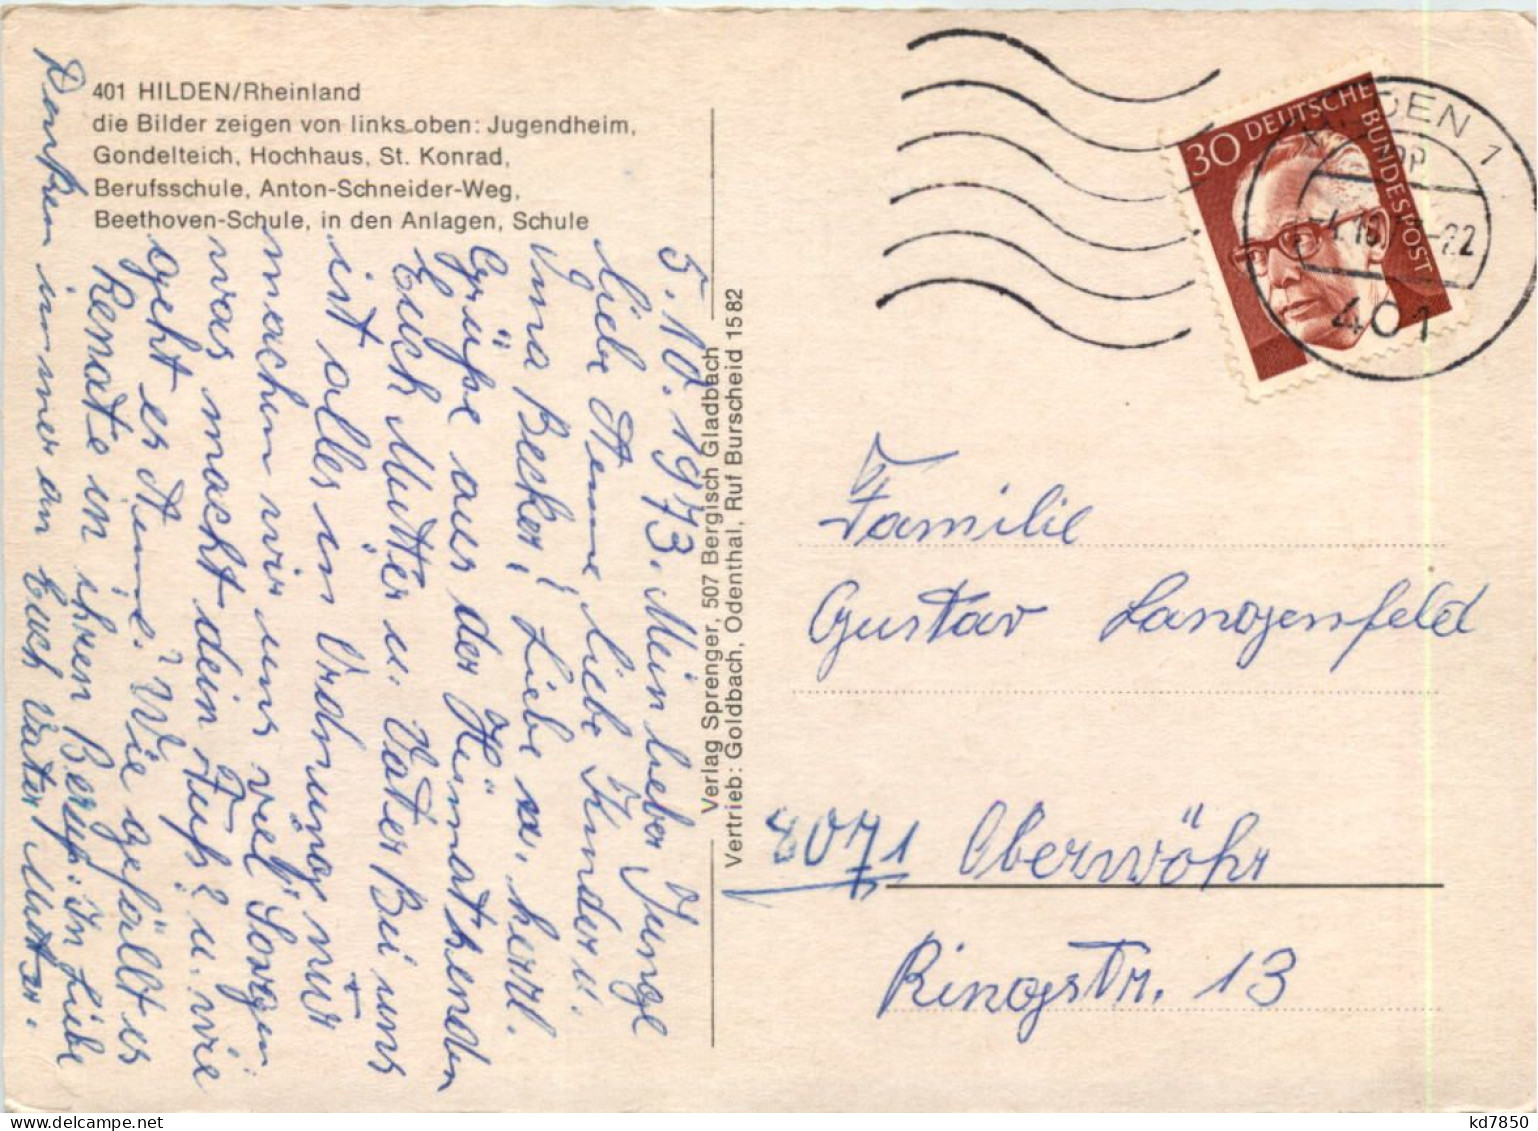 401 HILDEN/Rheinland
die Bilder zeigen von links oben: Jugendheim,
Gondelteich, Hochhaus, St. Konrad,
Berufsschule, Anton-Schneider-Weg,
Beethoven-Schule, in den Anlagen, Schule
5.10.1973. Mein lieber Junge
liebe Aenne, liebe Kinder u.
Uma Becker! Liebe u. herzl.
Grüße aus der Heimat senden
Euch Mutter u. Vater Bei uns
ist alles in Ordnung nur
machen wir uns viel Sorgen
was macht dein Fuß? u. wie
geht es Aenne? Wie gefällt es
Renate in ihren Beruf. In Liebe
Denken immer an Euch Vater Mutter.
Verlag Sprenger, 507 Bergisch Gladbach
Vertrieb: Goldbach, Odenthal, Ruf Burscheid 1582
30 DEUTSCHE BUNDESPOST
HILDEN 1
401
Familie
Gustav Langenfeld
8071 Oberwöhr
Ringstr. 13
kd7850